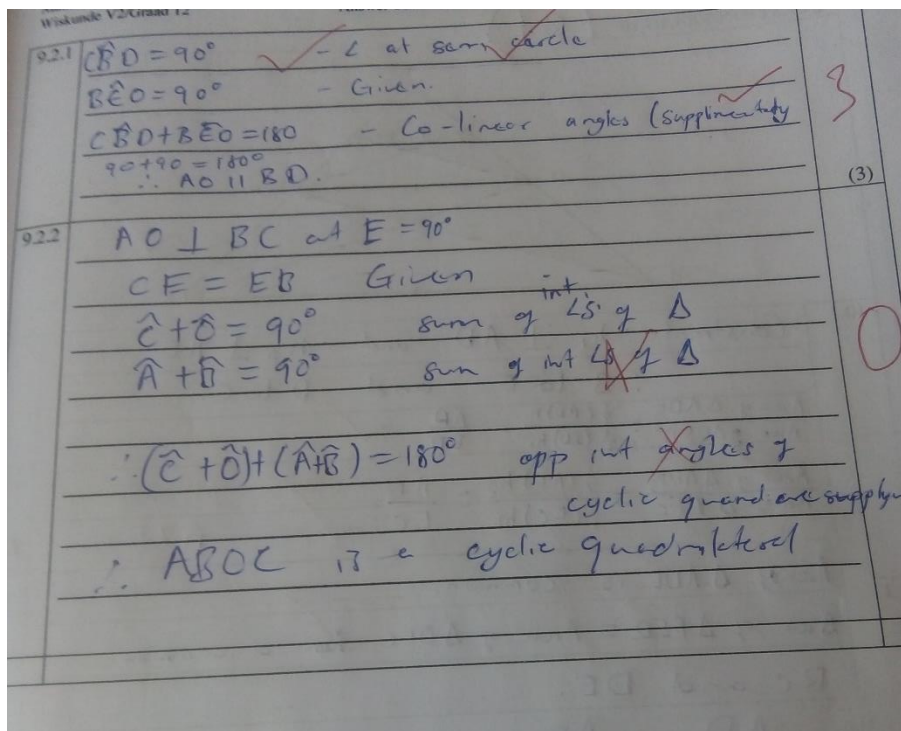 Wiskunde V2/Graad 12
9.2.1 CB̂D = 90° - ∠ at semi circle
BÊO = 90° - Given.
CB̂D + BÊO = 180 - Co-linear angles (Supplimentady
90+90 = 180°
∴ AO || BD.
3
(3)
9.2.2 AO ⊥ BC at E = 90°
CE = EB Given
Ĉ + Ô = 90° sum of int ∠s. of Δ
Â + B̂ = 90° sum of int ∠s of Δ
0
∴ (Ĉ + Ô) + (Â+B̂) = 180° opp int angles of
cyclic quand are
∴ ABOC is a cyclic quadrilateral